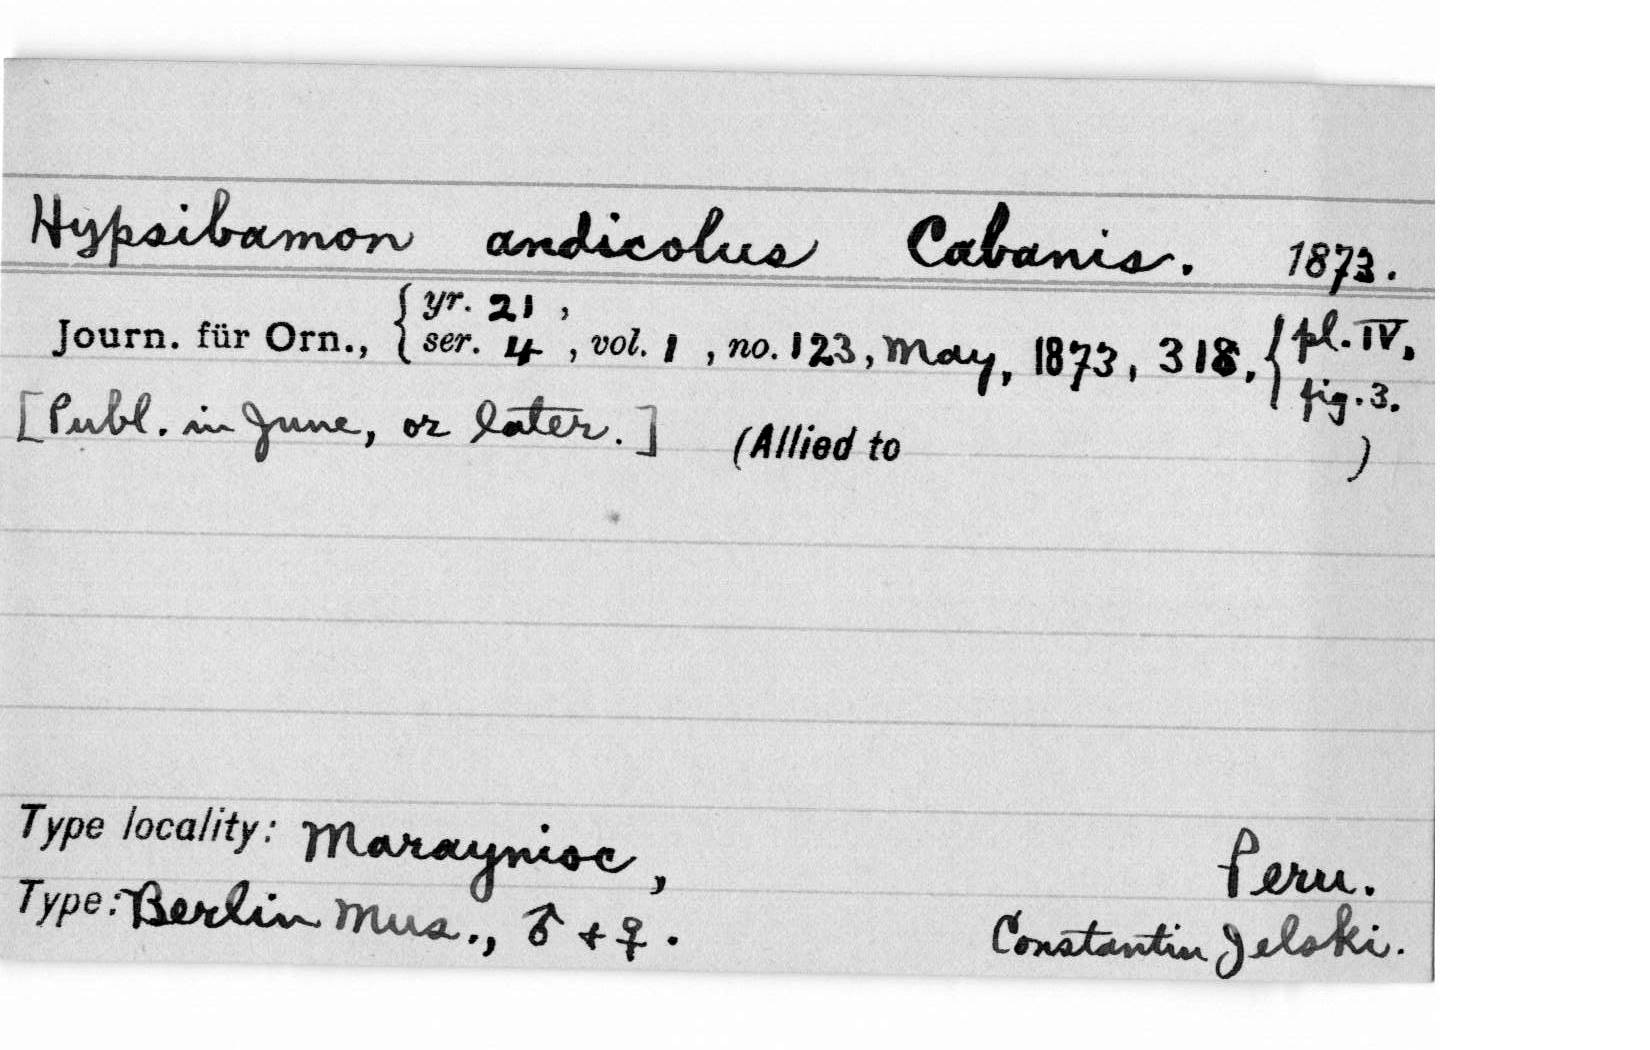 Hypsibamon andicolus Cabanis. 1873.
Journ. für Orn., { yr. 21 , ser. 4 , vol. 1 , no. 123, May, 1873, 318, { pl. IV, fig. 3.
[Publ. in June, or later.] (Allied to )
Type locality: Maraynioc, Peru.
Type: Berlin Mus., ♂ + ♀. Constantin Jelski.